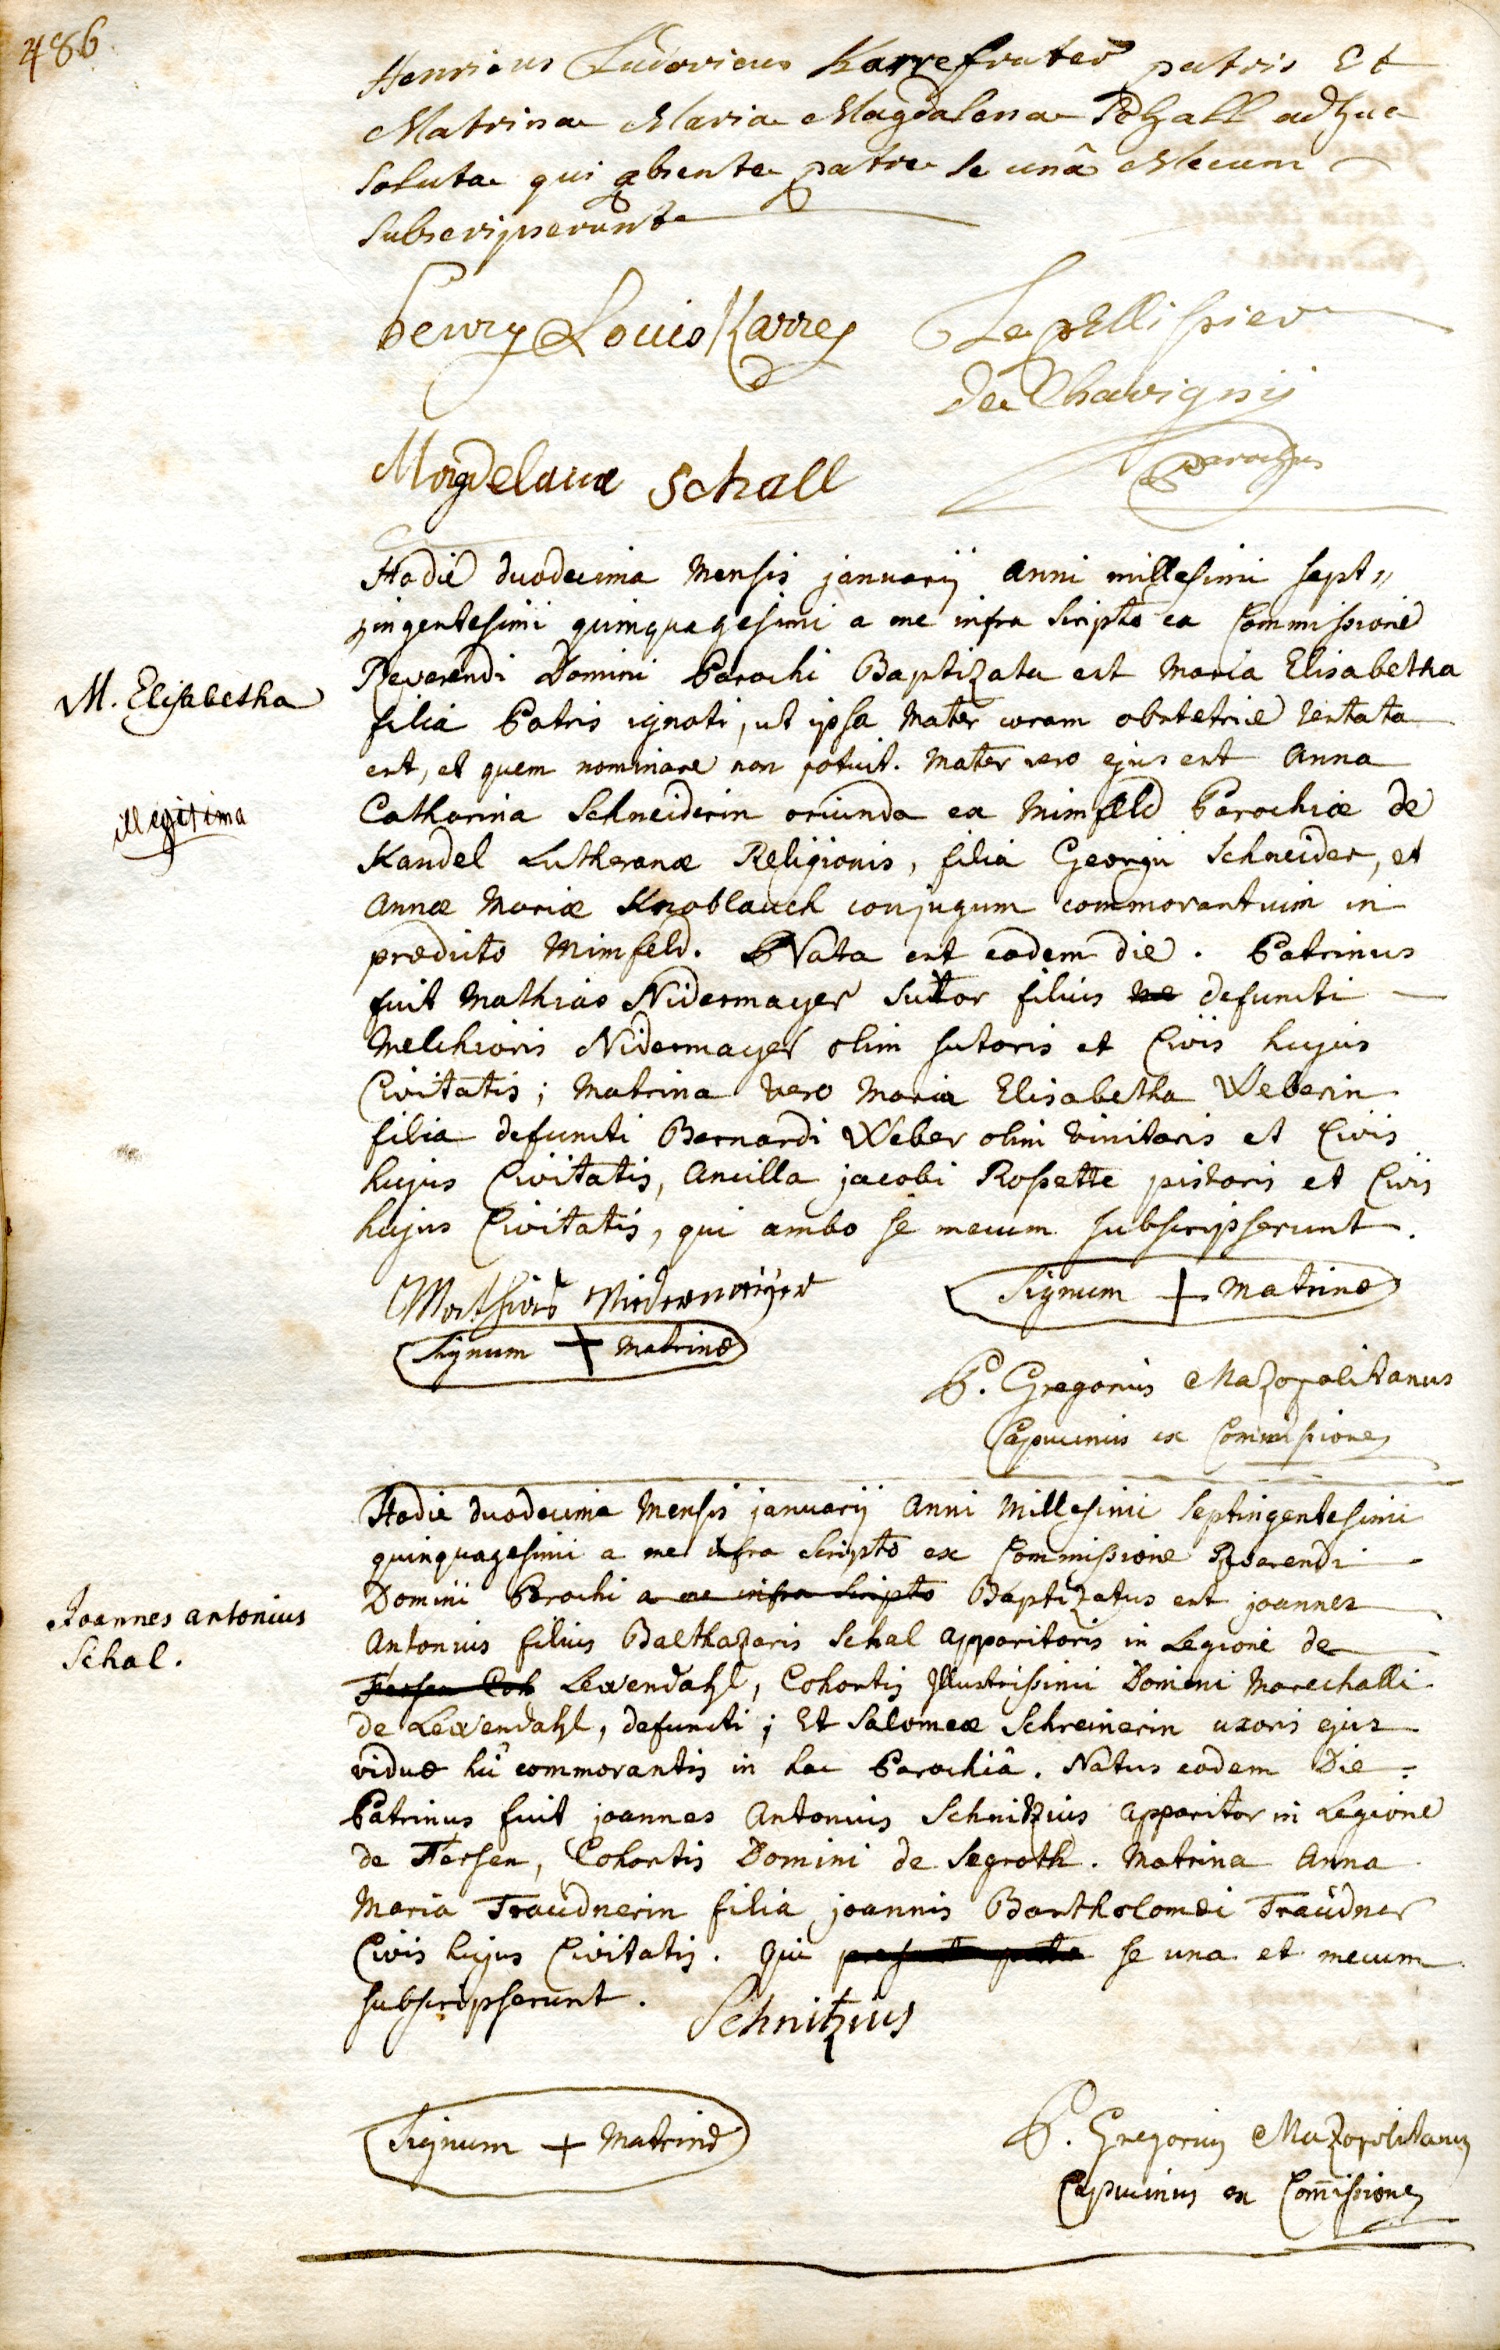 486
Henricus Ludovicus Karre frater patris Et
Matrina Maria Magdalena Schall adhuc
soluta qui absente patre se unâ Mecum
subscripserunt
henry Louis Karrey
Le pellissier
de Chavignij
Parochus
Magdelaina schall
Hodie duodecima mensis januarij anni millesimi sept„
„ingentesimi quinquagesimi a me infra scripto ex Commissione
Reverendi Domini Parochi Baptizata est maria Elisabetha
M. Elisabetha
filia Patris ignoti, ut ipsa mater coram obstetrice testata
est, et quem nominare non potuit. mater vero ejus est Anna
illegitima
Catharina Schneiderin oriunda ex Mimfeld Parochiæ de
Kandel Lutheranæ Religionis, filia Georgii Schneider, et
Annæ Mariæ Knoblauch conjugum commorantium in
prædicto Mimfeld. Nata est eadem die. Patrinus
fuit Mathias Nidermayer sutor filius ne defuncti
Melchioris Nidermayer olim sutoris et Civis hujus
Civitatis; Matrina vero Maria Elisabetha Weberin
filia defuncti Bernardi Weber olim vinitoris et Civis
hujus Civitatis, Ancilla jacobi Rossette pistoris et Civis
hujus Civitatis, qui ambo se mecum subscripserunt.
Mathias Niedermeijer
Signum + matrinæ
Signum + matrinæ
P. Gregorius Mazopolitanus
Capucinus ex Commissione
Hodie duodecima Mensis januarij Anni Millesimi Septingentesimi
quinquagesimi a me infra scripto ex Commissione Reverendi
Domini Parochi a me infra scripto Baptizatus est joannes
Joannes antonius
Schal.
Antonius filius Balthazaris Schal apparitoris in Legione de
Fersen Coh Lewendahl, Cohortis Illustrissimi Domini Marechalli
de Lewendahl, defuncti; Et Salomeæ Schreinerin uxoris ejus
viduæ hîc commorantis in hac Parochiâ. Natus eadem Die.
Patrinus fuit joannes Antonius Schnitzius apparitor in Legione
de Fersen, Cohortis Domini de Segroth. Matrina Anna
Maria Traudnerin filia joannis Bartholomæi Traudner
Civis hujus Civitatis. qui se una et mecum
subscripserunt.
Schnitzius
Signum + Matrinæ
P. Gregorius Mazopolitanus
Capucinus ex Com̄issione